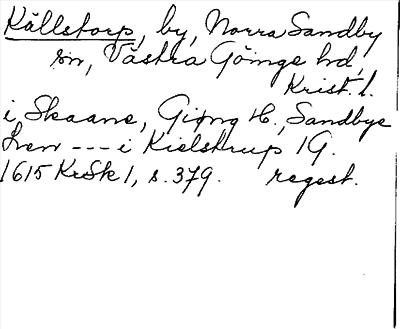 Källstorp, by, Norra Sandby
sn, Västra Göinge hd,
Krist. l.
i Skaane, Giøng H., Sandbye
Sven --- i Kielstrup 1 G.
1615 KrSk 1, s. 379. regest.